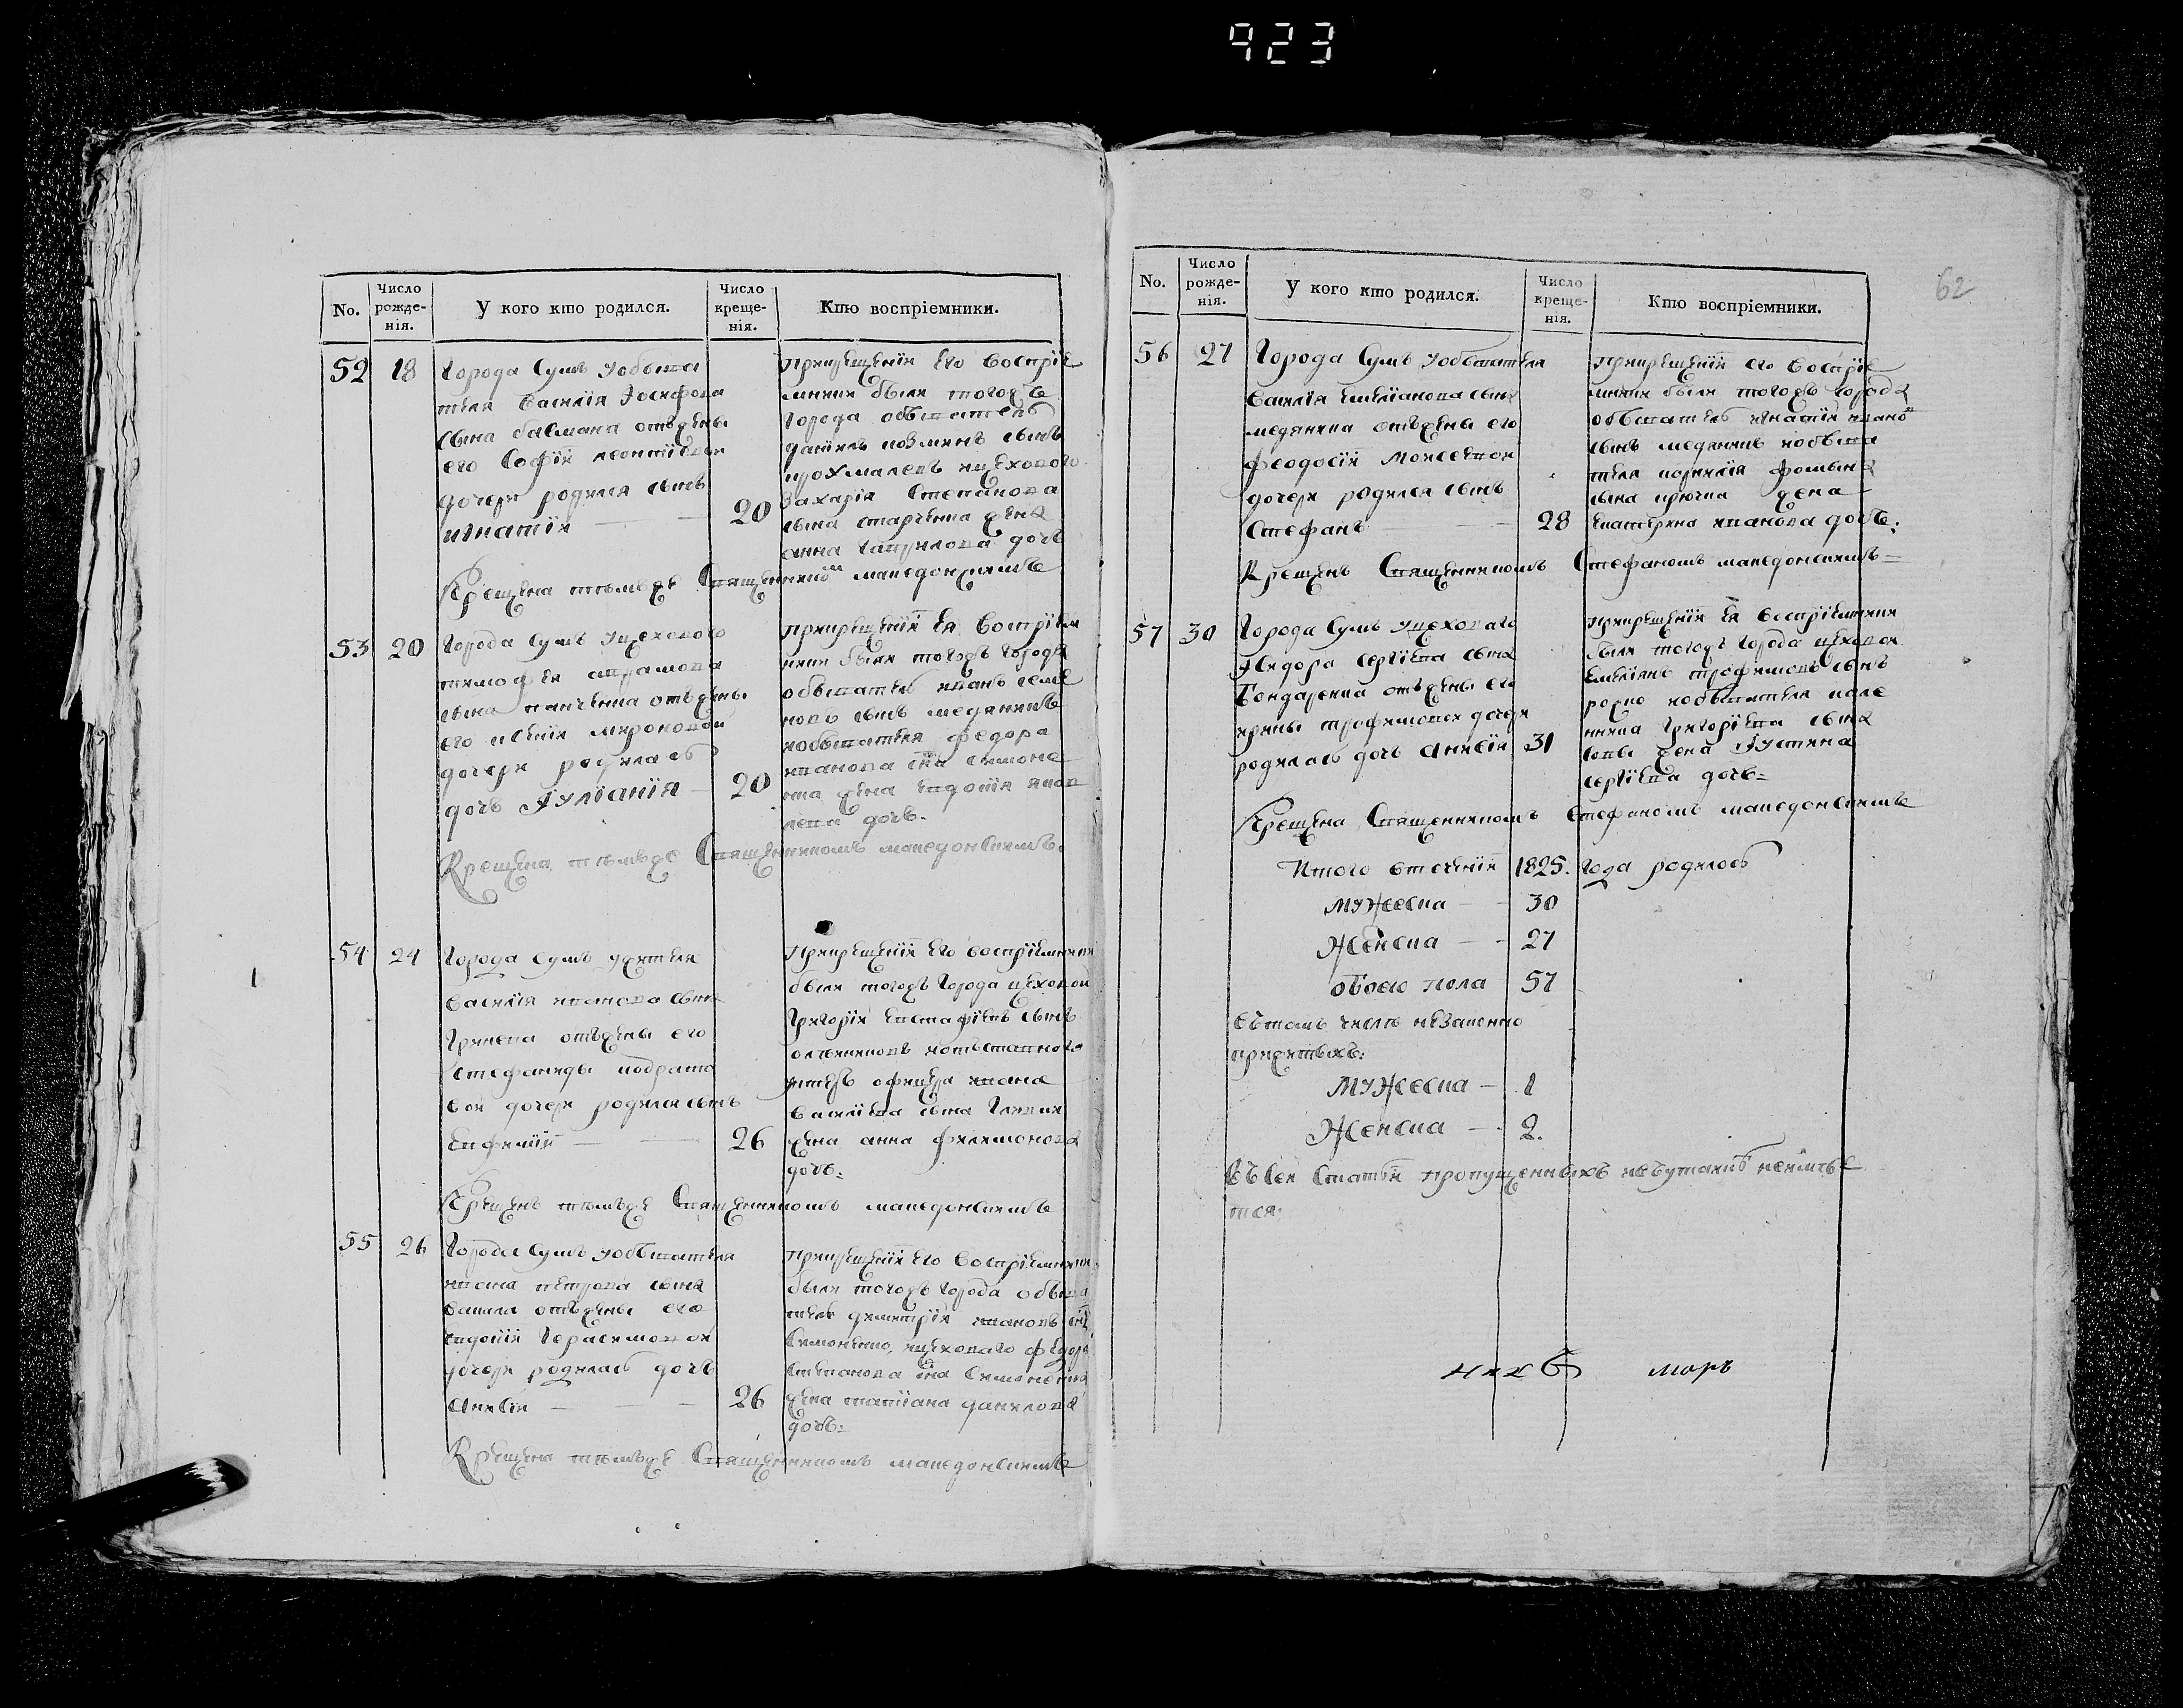 923
62
No.
Число рожде-нія.
У кого кто родился.
Число креще-нія.
Кто воспріемники.
52 18
Города Сумъ уобыва
теля Василія Іосифова
сына басмана отжены
его Софіи леонтіевои
дочери родился сынъ
игнатіи 20
прикрещеніи его воспріе
мники были тогожъ
города обыватель
даніилъ козминъ сынъ
ицехового
Захарія Степанова
сына старченка жена
анна гаврилова дочь
Крещена тѣмъже Священником македонскимъ
53 20
Города Сумъ уцехового
тимофея аврамова
сына панченка отжены
его ксеніи мироновои
дочери родилась
дочь Іуліанія 20
прикрещеніи ея Воспріем
ники были тогожъ города
обыватель иванъ семе
новъ сынъ медяникъ
иобывателя федора
иванова сна симоне
нка жена евдокія яков
лева дочь.
Крещена, тѣмъже Священникомъ македонскимъ.
54 24
Города Сумъ ужителя
василія иванова сына
отъжены его
Стефаниды кодрато
вои дочери родился сынъ
Евфиміи 26
Прикрещеніи его воспріемники
были тогожъ города цеховои
Григоріи евстафіевъ сынъ
олейниковъ иотставного
ундеръ офицера ивана
василіева сына
жена анна филимонова
дочь:
Крещенъ тѣмъже Священникомъ македонскимъ
55 26
Города Сумъ уобывателя
ивана петрова сына
отъжены его
евдокіи Герасимовои
дочери родилась дочь
Анисія 26
прикрещеніи его Воспріемники
были тогожъ города обыва
тель димитріи ивановъ снъ
Симоненко, ицеховаго федора
Степанова сна Симоненка
жена татіана данилова
дочь:
Крещена тѣмъже Священникомъ македонскимъ
No.
Число рожде-нія.
У кого кто родился.
Число креще-нія.
Кто воспріемники.
56 27
Города Сумъ уобывателя
василія емеліанова сына
медяника отъжены его
феодосіи Моисеевои
дочери родился сынъ
Стефанъ 28
прикрещеніи его воспріе
мники были тогожъ города
обыватель игнатіи ивано
сынъ медяникъ иобыва
теля корнилія фомина
сына крючка жена
екатерина иванова дочь:
Крещенъ Священникомъ Стефаномъ македонскимъ
57 30
Города Сумъ уцеховаго
Исидора сергіева сына
Бондаренка отъжены его
ирины трофимовои дочери
родилась дочь Анисія 31
прикрещеніи ея воспріемники
были тогожъ города цеховои
емеліянъ трофимовъ сынъ
иобывателя кале
ника григоріева сына
жена Іустина
сергіева дочь
Крещена Священникомъ Стефаномъ македонскимъ
Итого втеченіи 1825. года родилось
мужеска 30
женска 27
обоего пола 57
вътомъ числѣ незаконно
прижитыхъ:
мужеска 1
женска 2.
Въсеи Статьи пропущенныхъ неимѣе
тся.